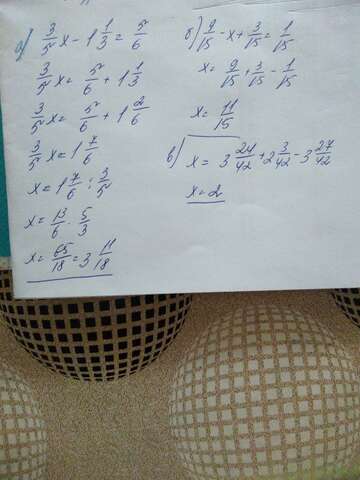 а) 3/5 x - 1 1/3 = 5/6
3/5 x = 5/6 + 1 1/3
3/5 x = 5/6 + 1 2/6
3/5 x = 1 7/6
x = 1 7/6 : 3/5
x = 13/6 · 5/3
x = 65/18 = 3 11/18
б) 9/15 - x + 3/15 = 1/15
x = 9/15 + 3/15 - 1/15
x = 11/15
в) x = 3 24/42 + 2 3/42 - 3 27/42
x = 2